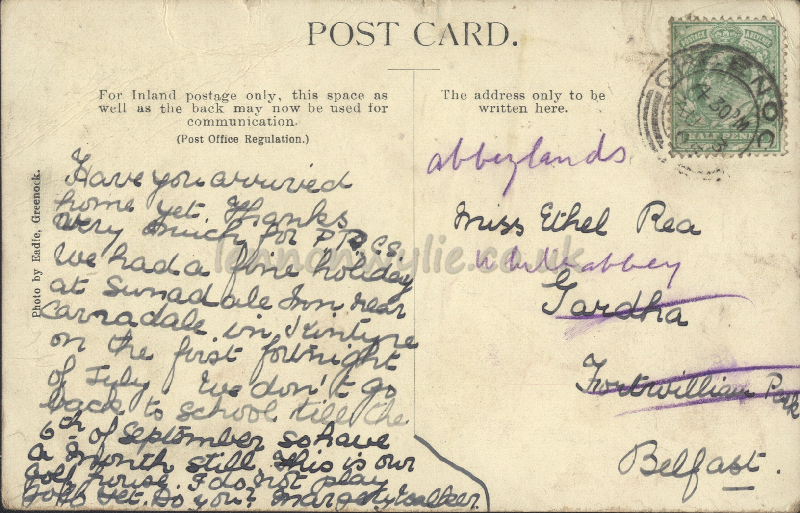 POST CARD.
For Inland postage only, this space as
well as the back may now be used for
communication.
(Post Office Regulation.)
The address only to be
written here.
Photo by Eadie, Greenock.
Have you arrived
home yet. Thanks
very much for P.P.Cs.
We had a fine holiday
at Sunadale Inn near
Carradale in Kintyre
on the first fortnight
of July We don't go
back to school till the
6th of September so have
a month still. This is our
Golf house. I do not play
Golf yet. Do you? Margery Walker.
abbeylands
Miss Ethel Rea
Whiteabbey
Gardha
Fortwilliam Park
Belfast.
GREENOC
4.30PM
POSTAGE
HALF PENNY
lennonwylie.co.uk